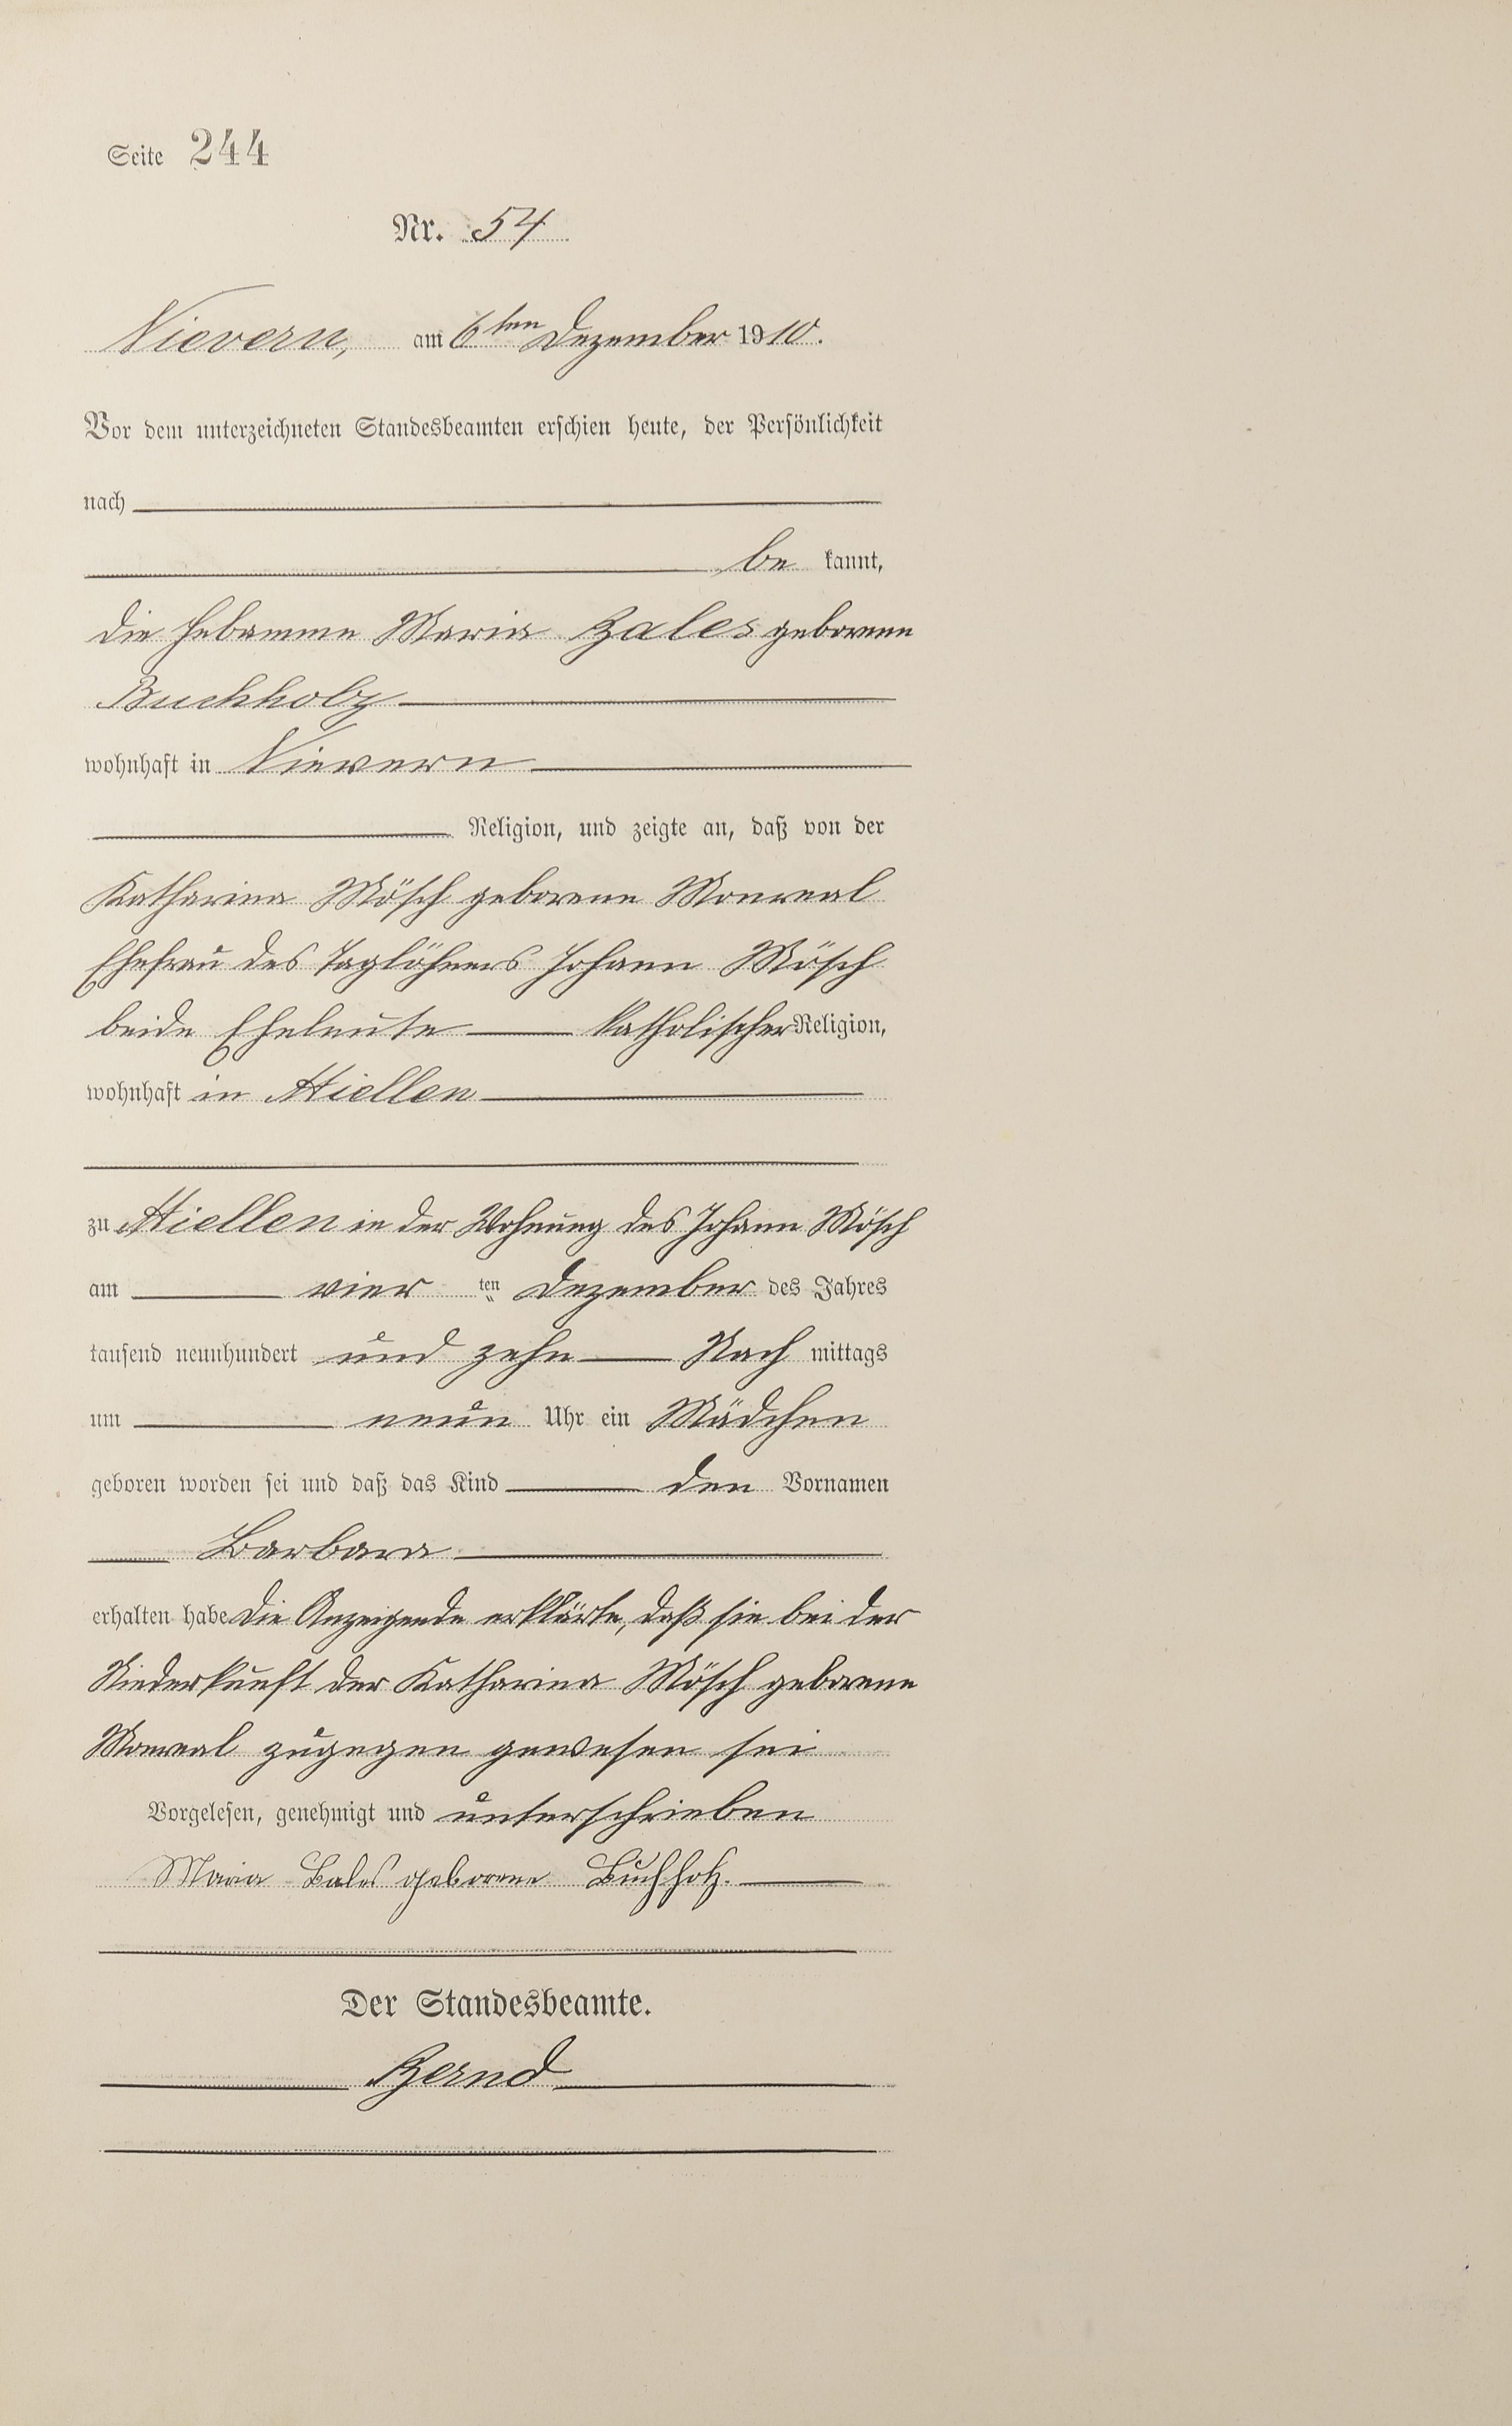 Seite 244
Nr. 54
Nievern, am 6ten Dezember 1910.
Vor dem unterzeichneten Standesbeamten erschien heute, der Persönlichkeit
nach
be kannt,
die Hebamme Maria Bales geborene
Buchholz
wohnhaft in Nievern
Religion, und zeigte an, daß von der
Katharina Mösch geborene Monreal
Ehefrau des Taglöhners Johann Mösch
beide Eheleute katholischer Religion,
wohnhaft in Miellen
zu Miellen in der Wohnung des Johann Mösch
am vier ten Dezember des Jahres
tausend neunhundert und zehn Nach mittags
um neun Uhr ein Mädchen
geboren worden sei und daß das Kind den Vornamen
Barbara
erhalten habe. Die Anzeigende erklärte, daß sie bei der
Niederkunft der Katharina Mösch geborene
Monreal zugegen gewesen sei
Vorgelesen, genehmigt und unterschrieben
Maria Bales geborene Buchholz.
Der Standesbeamte.
Bernd